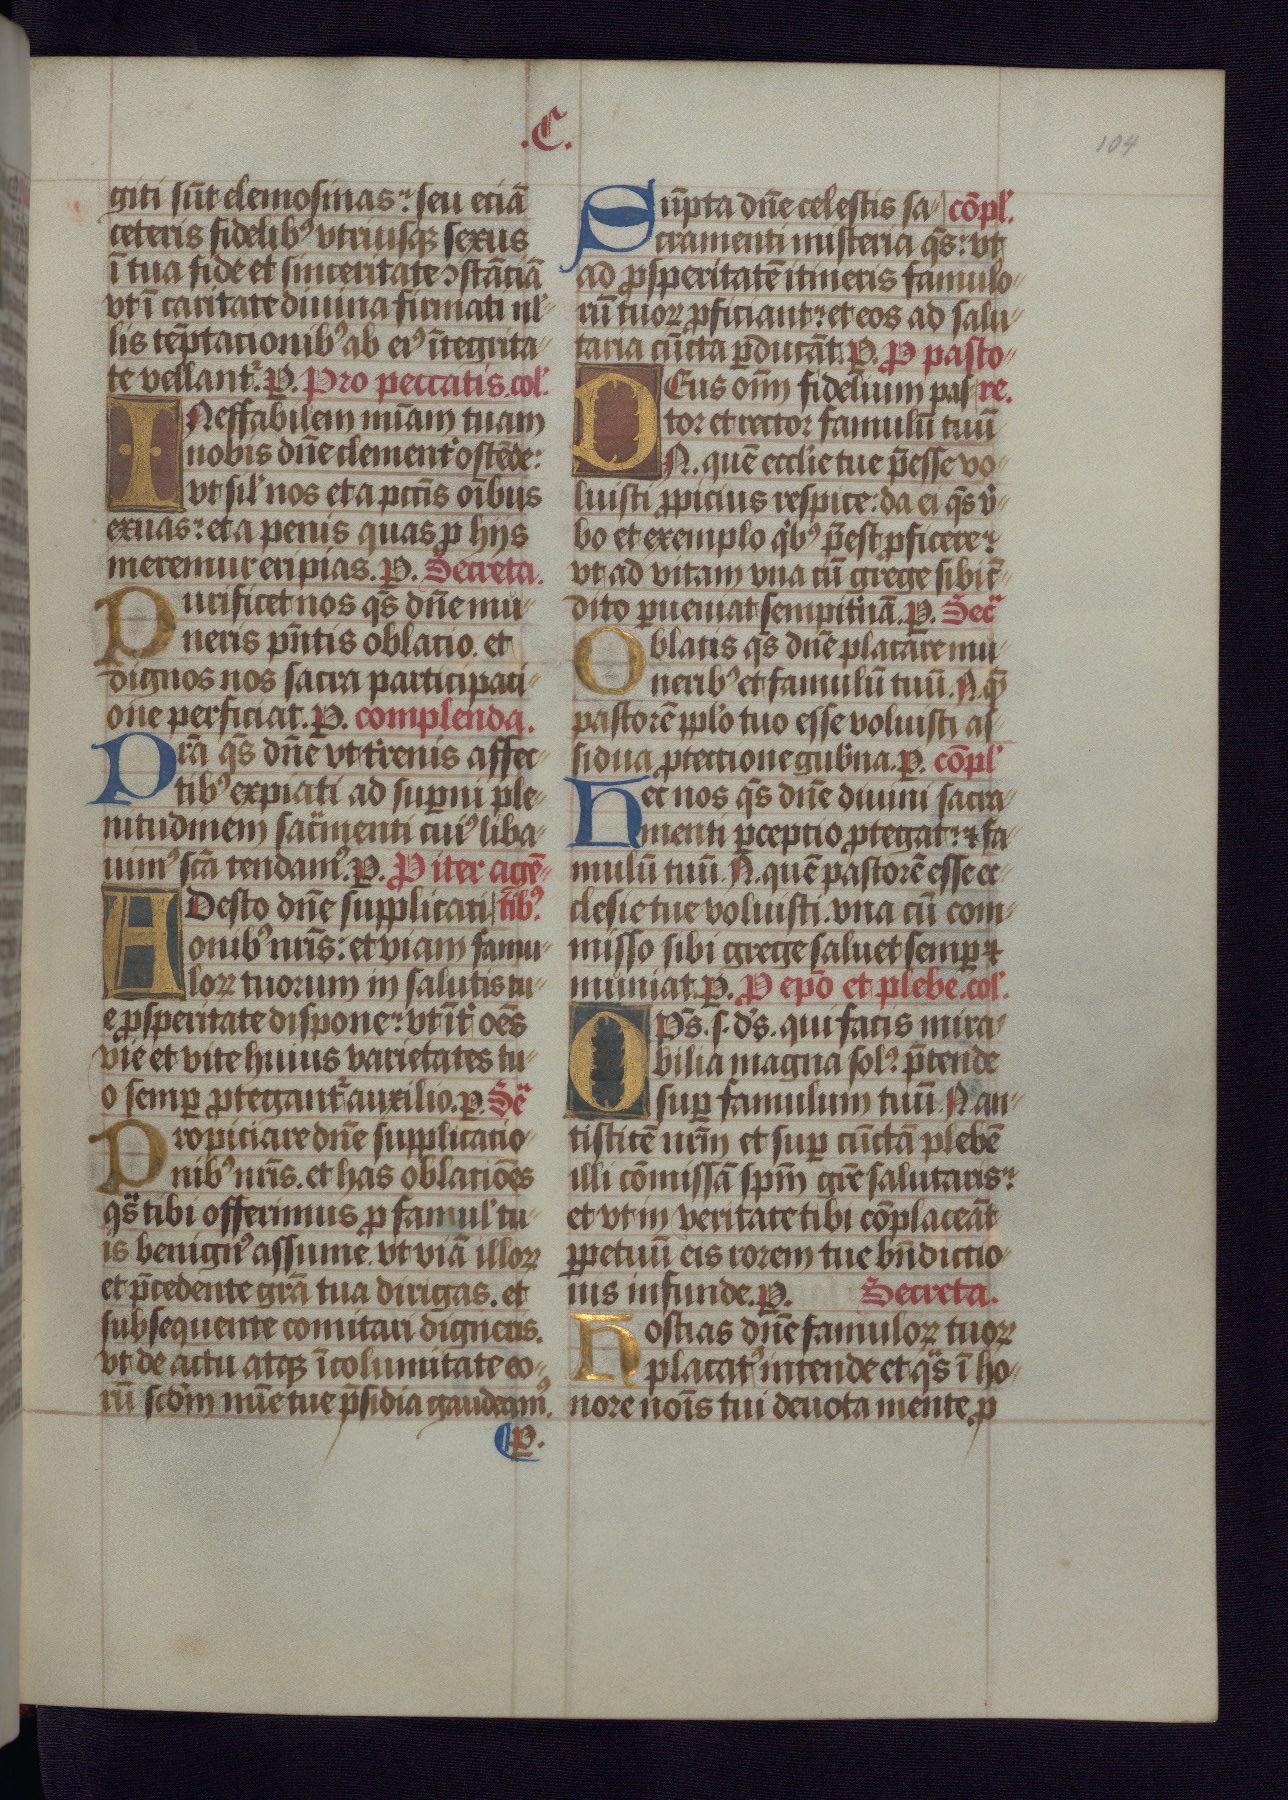 .C.
104
giti sūt elemosinas: seu eciā
ceteris fidelibꝰ vtriusqꝫ sexus
ī tua fide et sinceritate ꝯstāciā
vt ī caritate diuina firmati nl-
lis tēptacionibꝰ ab eiꝰ ītegrita-
te vellant᷑. P. Pro peccatis. col'.
INeffabilem mīam tuam
nobis dn̄e clement᷑ ostēde:
vt sil' nos et a pctīs oībus
exuas: et a penis quas ꝓ hijs
meremur eripias. P. Secreta.
Purificet nos qs̄ dn̄e mu-
neris pn̄tis oblacio. et
dignos nos sacra participati-
one perficiat. P. complenda.
Prā qs̄ dn̄e vt t᷑renis affec-
tibꝰ expiati ad suꝑni ple-
nitudinem sac̄menti cuiꝰ liba-
uimꝰ scā tendamꝰ. P. P iter agē-
ADesto dn̄e supplicati tibꝰ.
onibꝰ nr̄is: et viam famu-
loꝝ tuorum in salutis tu-
e ꝓsperitate dispone: vt īt᷑ oēs
vie et vite huius varietates tu-
o semꝑ ꝓtegant᷑ auxilio. P. Sē
Propiciare dn̄e supplicatio-
nibꝰ nr̄is. et has oblatiōes
qs̄ tibi offerimus ꝓ famul' tu-
is benignꝰ assume. vt viā illoꝝ
et p̄cedente grā tua dirigas. et
subsequente comitari digneris.
vt de actu atqꝫ īcolumitate eo-
rū scdm mīe tue p̄sidia gaudeamꝰ.
P.
Sūpta dn̄e celestis sa- cōpl'.
cramenti misteria qs̄: vt
ad ꝓsperitatē itineris famulo-
rū tuoꝝ ꝓficiant: et eos ad salu-
taria cūcta ꝑducāt. P. P pasto-
DEus oīm fidelium pas- re.
tor et rector famulū tuū
N. quē ecclie tue p̄esse vo-
luisti ꝓpicius respice: da ei qs̄ v᷑-
bo et exemplo qͥbꝰ p̄est ꝓficere:
vt ad vitam vna cū grege sibi c᷑-
dito ꝑueniat sempit᷑nā. P. Sec᷑
Oblatis qs̄ dn̄e placare mu-
neribꝰ et famulū tuū. N. qͣ
pastorē pplo tuo esse voluisti as-
sidua ꝓtectione gub᷑na. P. cōpl'
Hec nos qs̄ dn̄e diuini sacra-
menti ꝑceptio ꝓtegat: ⁊ fa-
mulū tuū. N. quē pastorē esse ec-
clesie tue voluisti. vna cū com-
misso sibi grege saluet semꝑ ⁊
muniat. P. P epō et plebe. col'.
OPs̄. s. ds̄. qui facis mira-
bilia magna solꝰ: p̄tende
suꝑ famulum tuū N. an-
tistitē nr̄m et suꝑ cūctā plebē
illi cōmissā spm̄ gr̄e salutaris:
et vt in veritate tibi cōplaceāt
ꝑpetuū eis rorem tue bn̄dictio-
nis infunde. P. Secreta.
Hostias dn̄e famuloꝝ tuoꝝ
placatꝰ intende et qͣs ī ho-
nore noīs tui deuota mente ꝓ